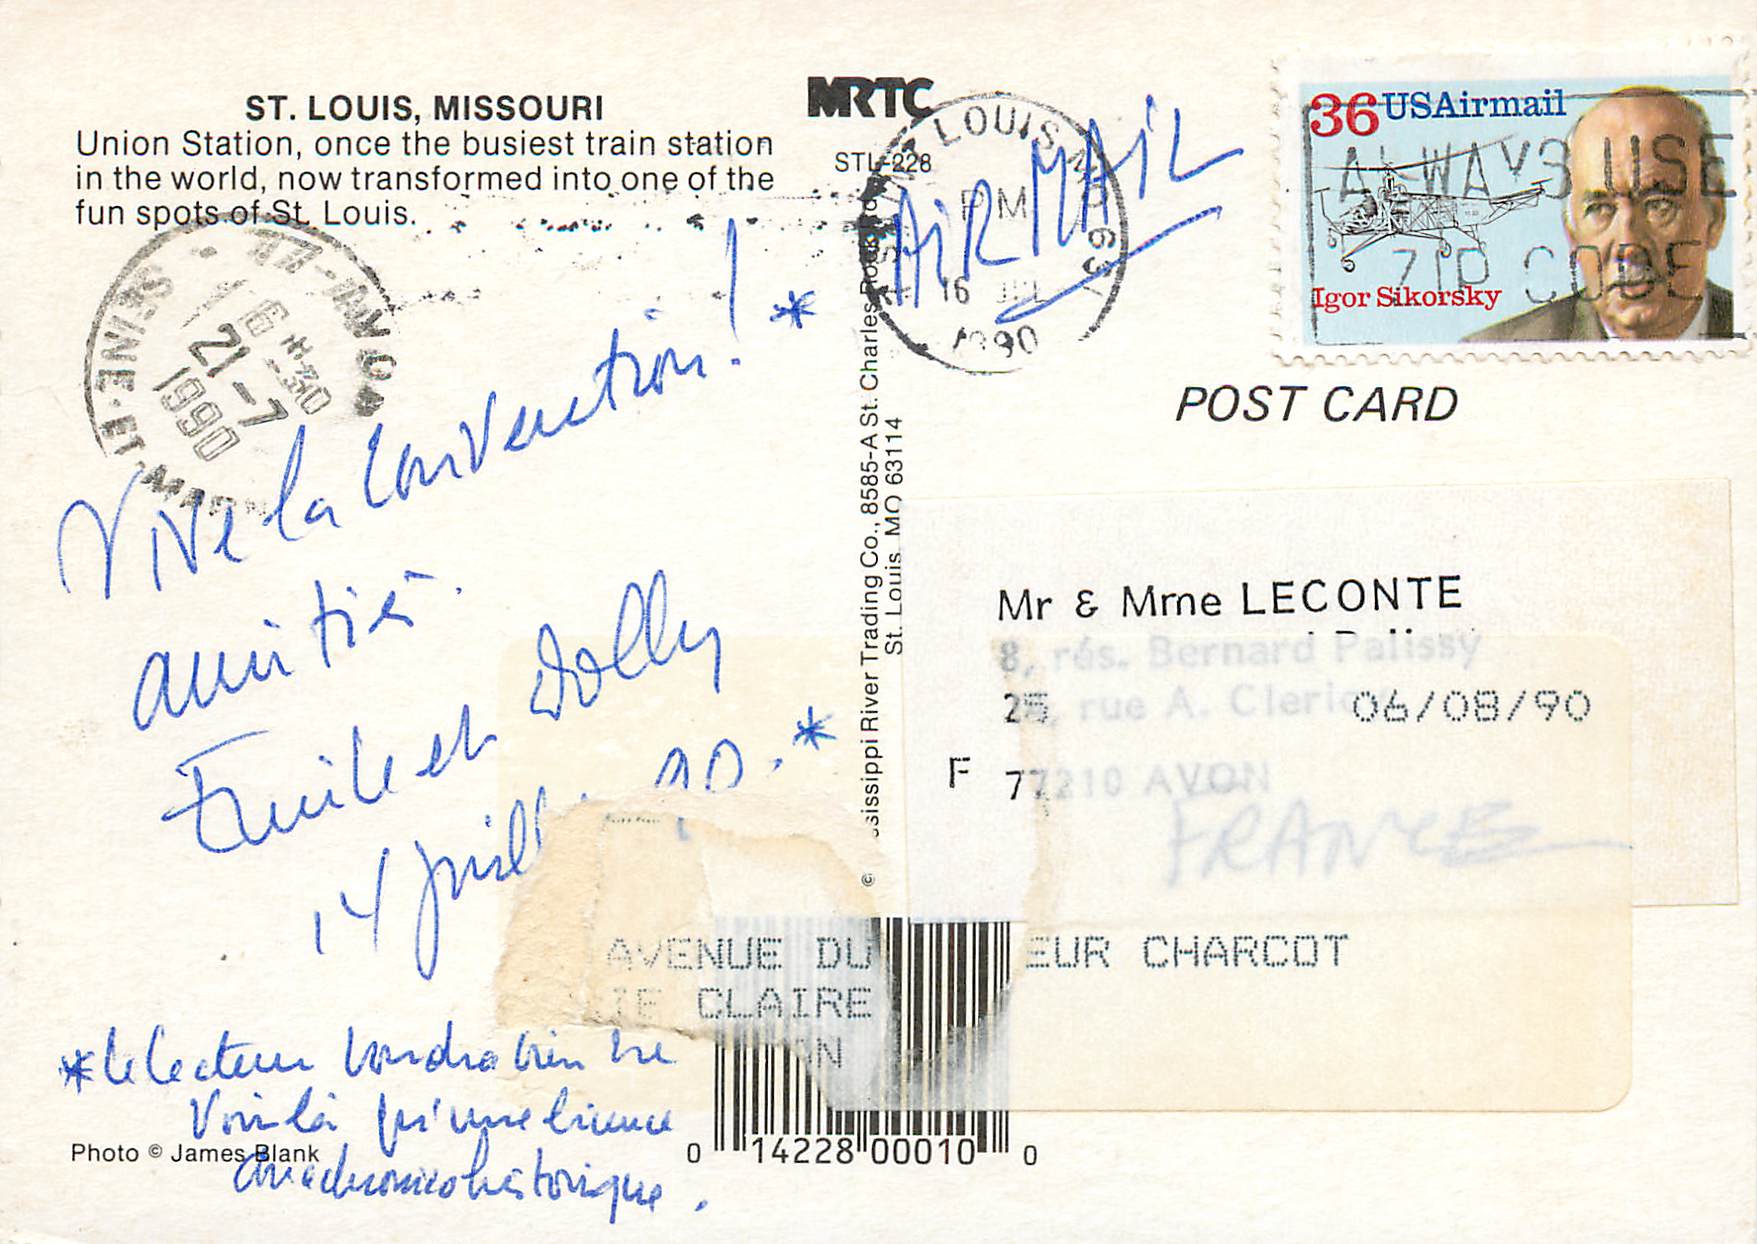 ST. LOUIS, MISSOURI
Union Station, once the busiest train station
in the world, now transformed into one of the
fun spots of St. Louis.
MRTC
STL-228
36 USAirmail
Igor Sikorsky
ALWAYS USE
ZIP CODE
LOUIS
PM
16 JUL
1990
AIR MAIL
POST CARD
SEINE-ET-MAR
16 H 30
21-7
1990
Vive la Convention ! *
amitiés.
Emile et Dolly
14 Juill 90. *
* le lecteur voudra bien ne
voir là qu'une licence
anachronicohistorique.
Photo © James Blank
© ssissippi River Trading Co., 8585-A St. Charles Rock
St. Louis, MO 63114
Mr & Mme LECONTE
8, rés. Bernard Palissy
25, rue A. Cleri
06/08/90
F 77210 AVON
FRANCE
AVENUE DU EUR CHARCOT
IE CLAIRE
ON
0 14228 00010 0